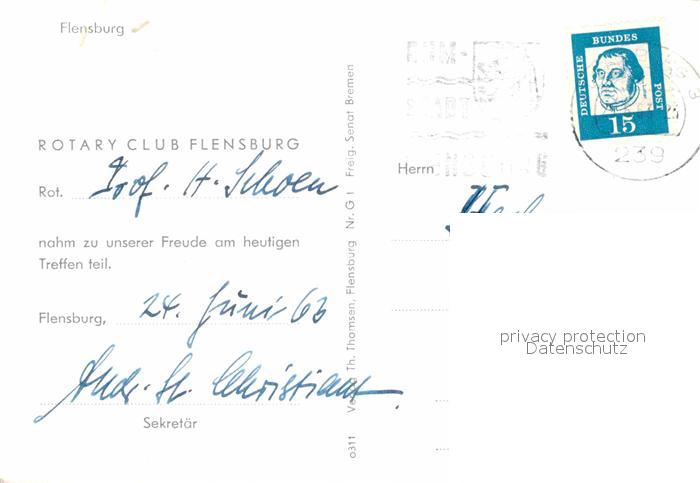 Flensburg
ROTARY CLUB FLENSBURG
Rot. Prof. H. Schoen
nahm zu unserer Freude am heutigen
Treffen teil.
Flensburg, 24. Juni 63
Andr. St. Christians
Sekretär
0311 Verlag Th. Thomsen, Flensburg Nr. G I Freig. Senat Bremen
DEUTSCHE
BUNDES
POST
15
239
Herrn
privacy protection
Datenschutz